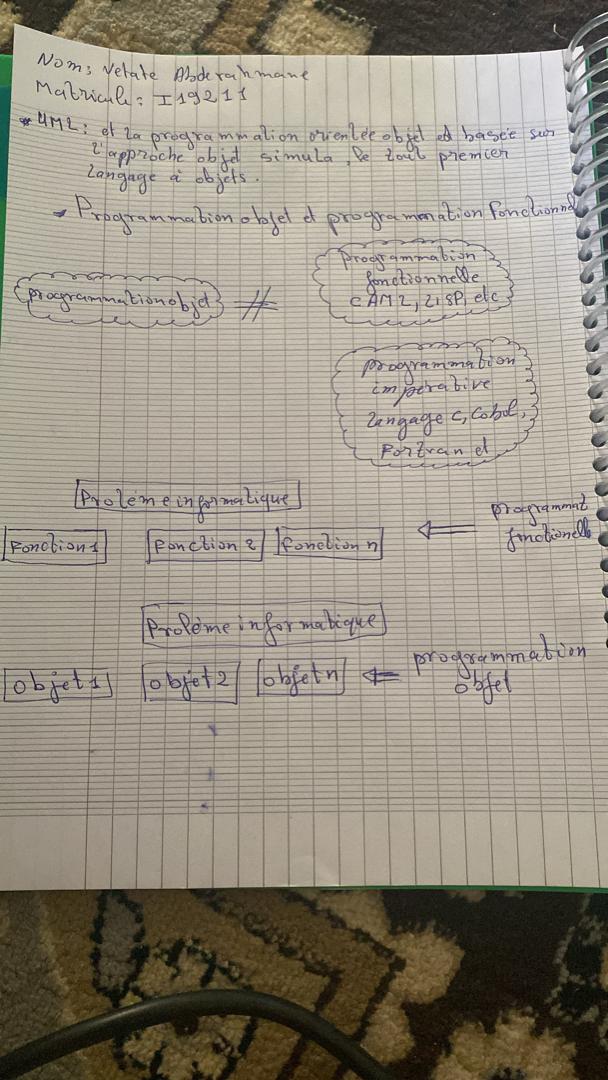 Nom: Vetate Abderahmane
Matricule: I19211
* UML: et la programmation orientée objet est basée sur
l'approche objet simula, le tout premier
langage à objets.
Programmation objet et programmation fonctionnel
programmation objet
≠
programmation
fonctionnelle
CAML, LISP, etc
programmation
impérative
langage C, Cobol,
Fortran et
Proléme informatique
Fonction 1
Fonction 2
fonction n
⇐
programmat
fonctionell
Proléme informatique
objet 1
objet 2
objet n
⇐
programmation
objet